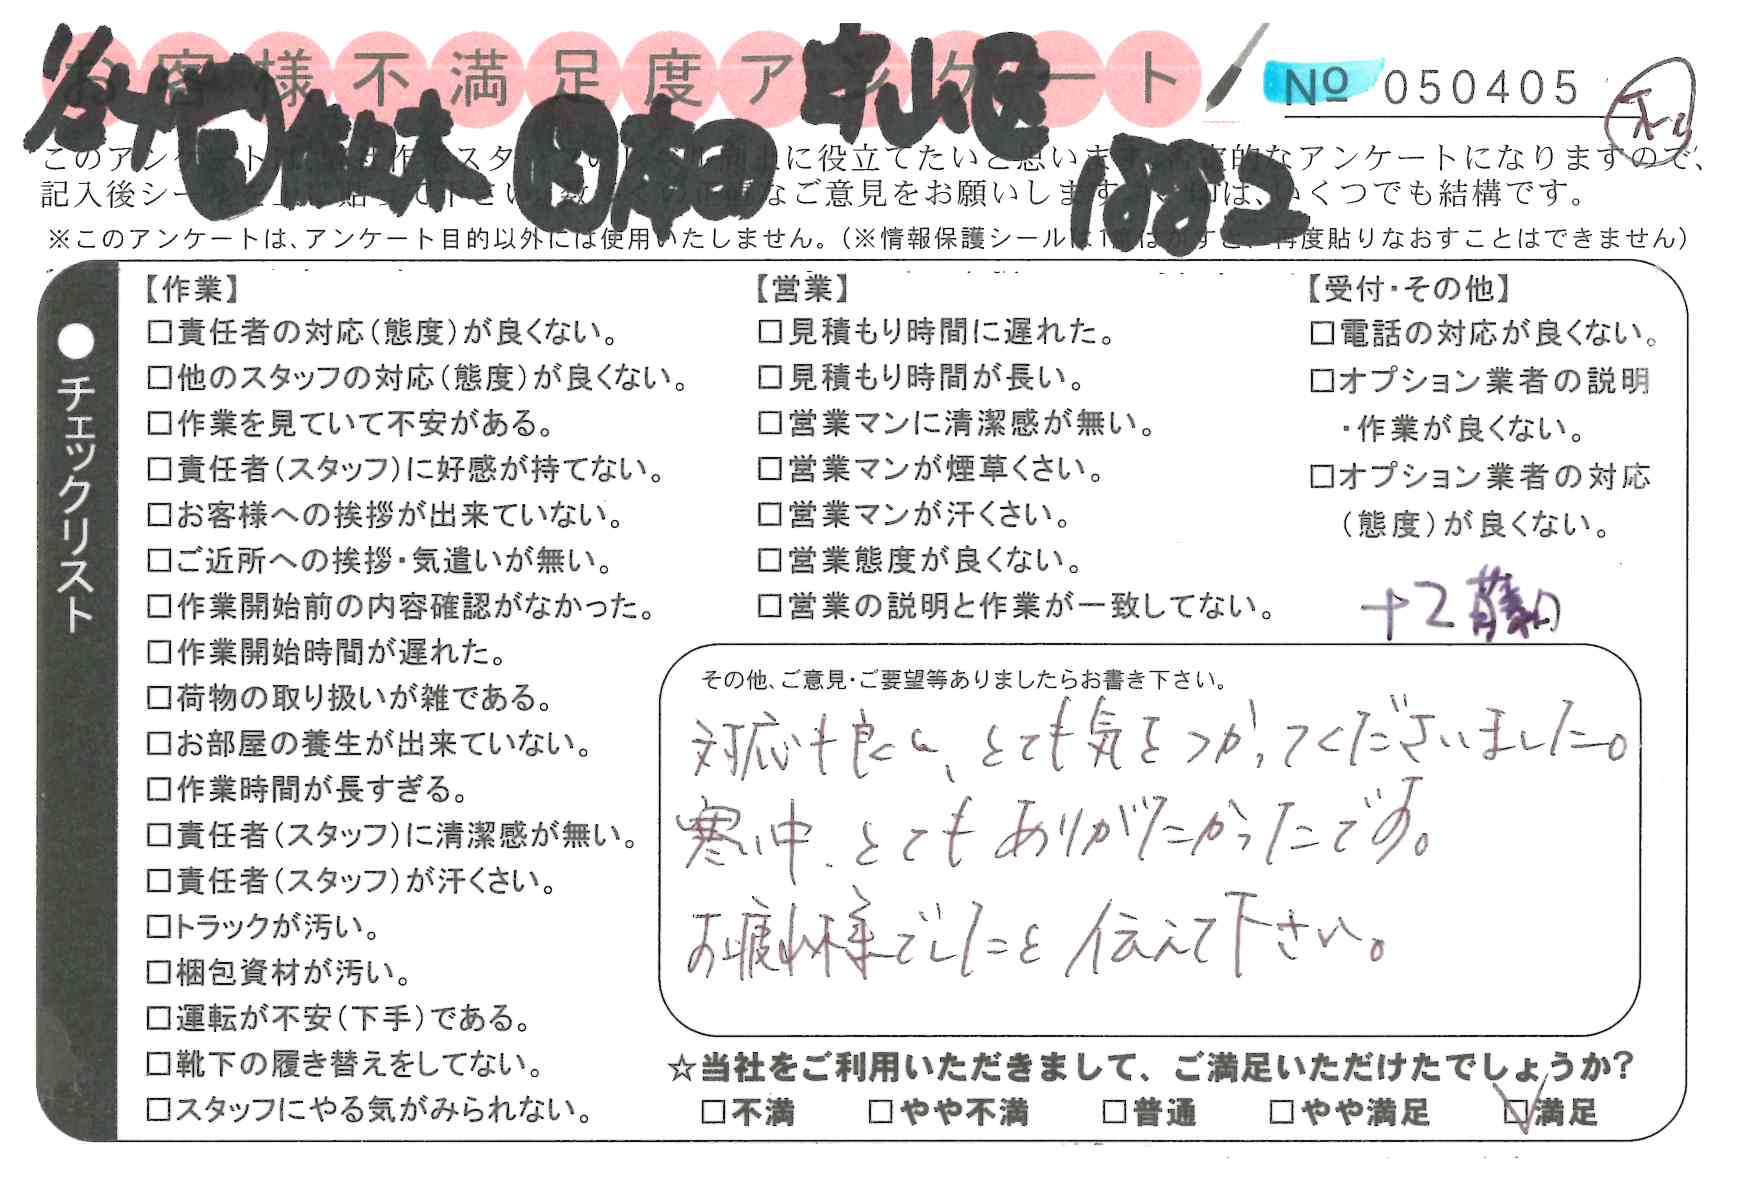 お客様不満足度アンケート
№ 050405
このアンケート 役立てたいと思います なアンケートになりますので、
記入後シー なご意見をお願いします いくつでも結構です。
※このアンケートは、アンケート目的以外には使用いたしません。(※情報保護シールは 再度貼りなおすことはできません)
●チェックリスト
【作業】
□責任者の対応(態度)が良くない。
□他のスタッフの対応(態度)が良くない。
□作業を見ていて不安がある。
□責任者(スタッフ)に好感が持てない。
□お客様への挨拶が出来ていない。
□ご近所への挨拶・気遣いが無い。
□作業開始前の内容確認がなかった。
□作業開始時間が遅れた。
□荷物の取り扱いが雑である。
□お部屋の養生が出来ていない。
□作業時間が長すぎる。
□責任者(スタッフ)に清潔感が無い。
□責任者(スタッフ)が汗くさい。
□トラックが汚い。
□梱包資材が汚い。
□運転が不安(下手)である。
□靴下の履き替えをしてない。
□スタッフにやる気がみられない。
【営業】
□見積もり時間に遅れた。
□見積もり時間が長い。
□営業マンに清潔感が無い。
□営業マンが煙草くさい。
□営業マンが汗くさい。
□営業態度が良くない。
□営業の説明と作業が一致してない。
【受付・その他】
□電話の対応が良くない。
□オプション業者の説明
・作業が良くない。
□オプション業者の対応
(態度)が良くない。
その他、ご意見・ご要望等ありましたらお書き下さい。
対応も良く、とても気をつかってくださいました。
寒い中、とてもありがたかったです。
お疲れ様でしたと伝えて下さい。
☆当社をご利用いただきまして、ご満足いただけたでしょうか?
□不満 □やや不満 □普通 □やや満足 ☑満足